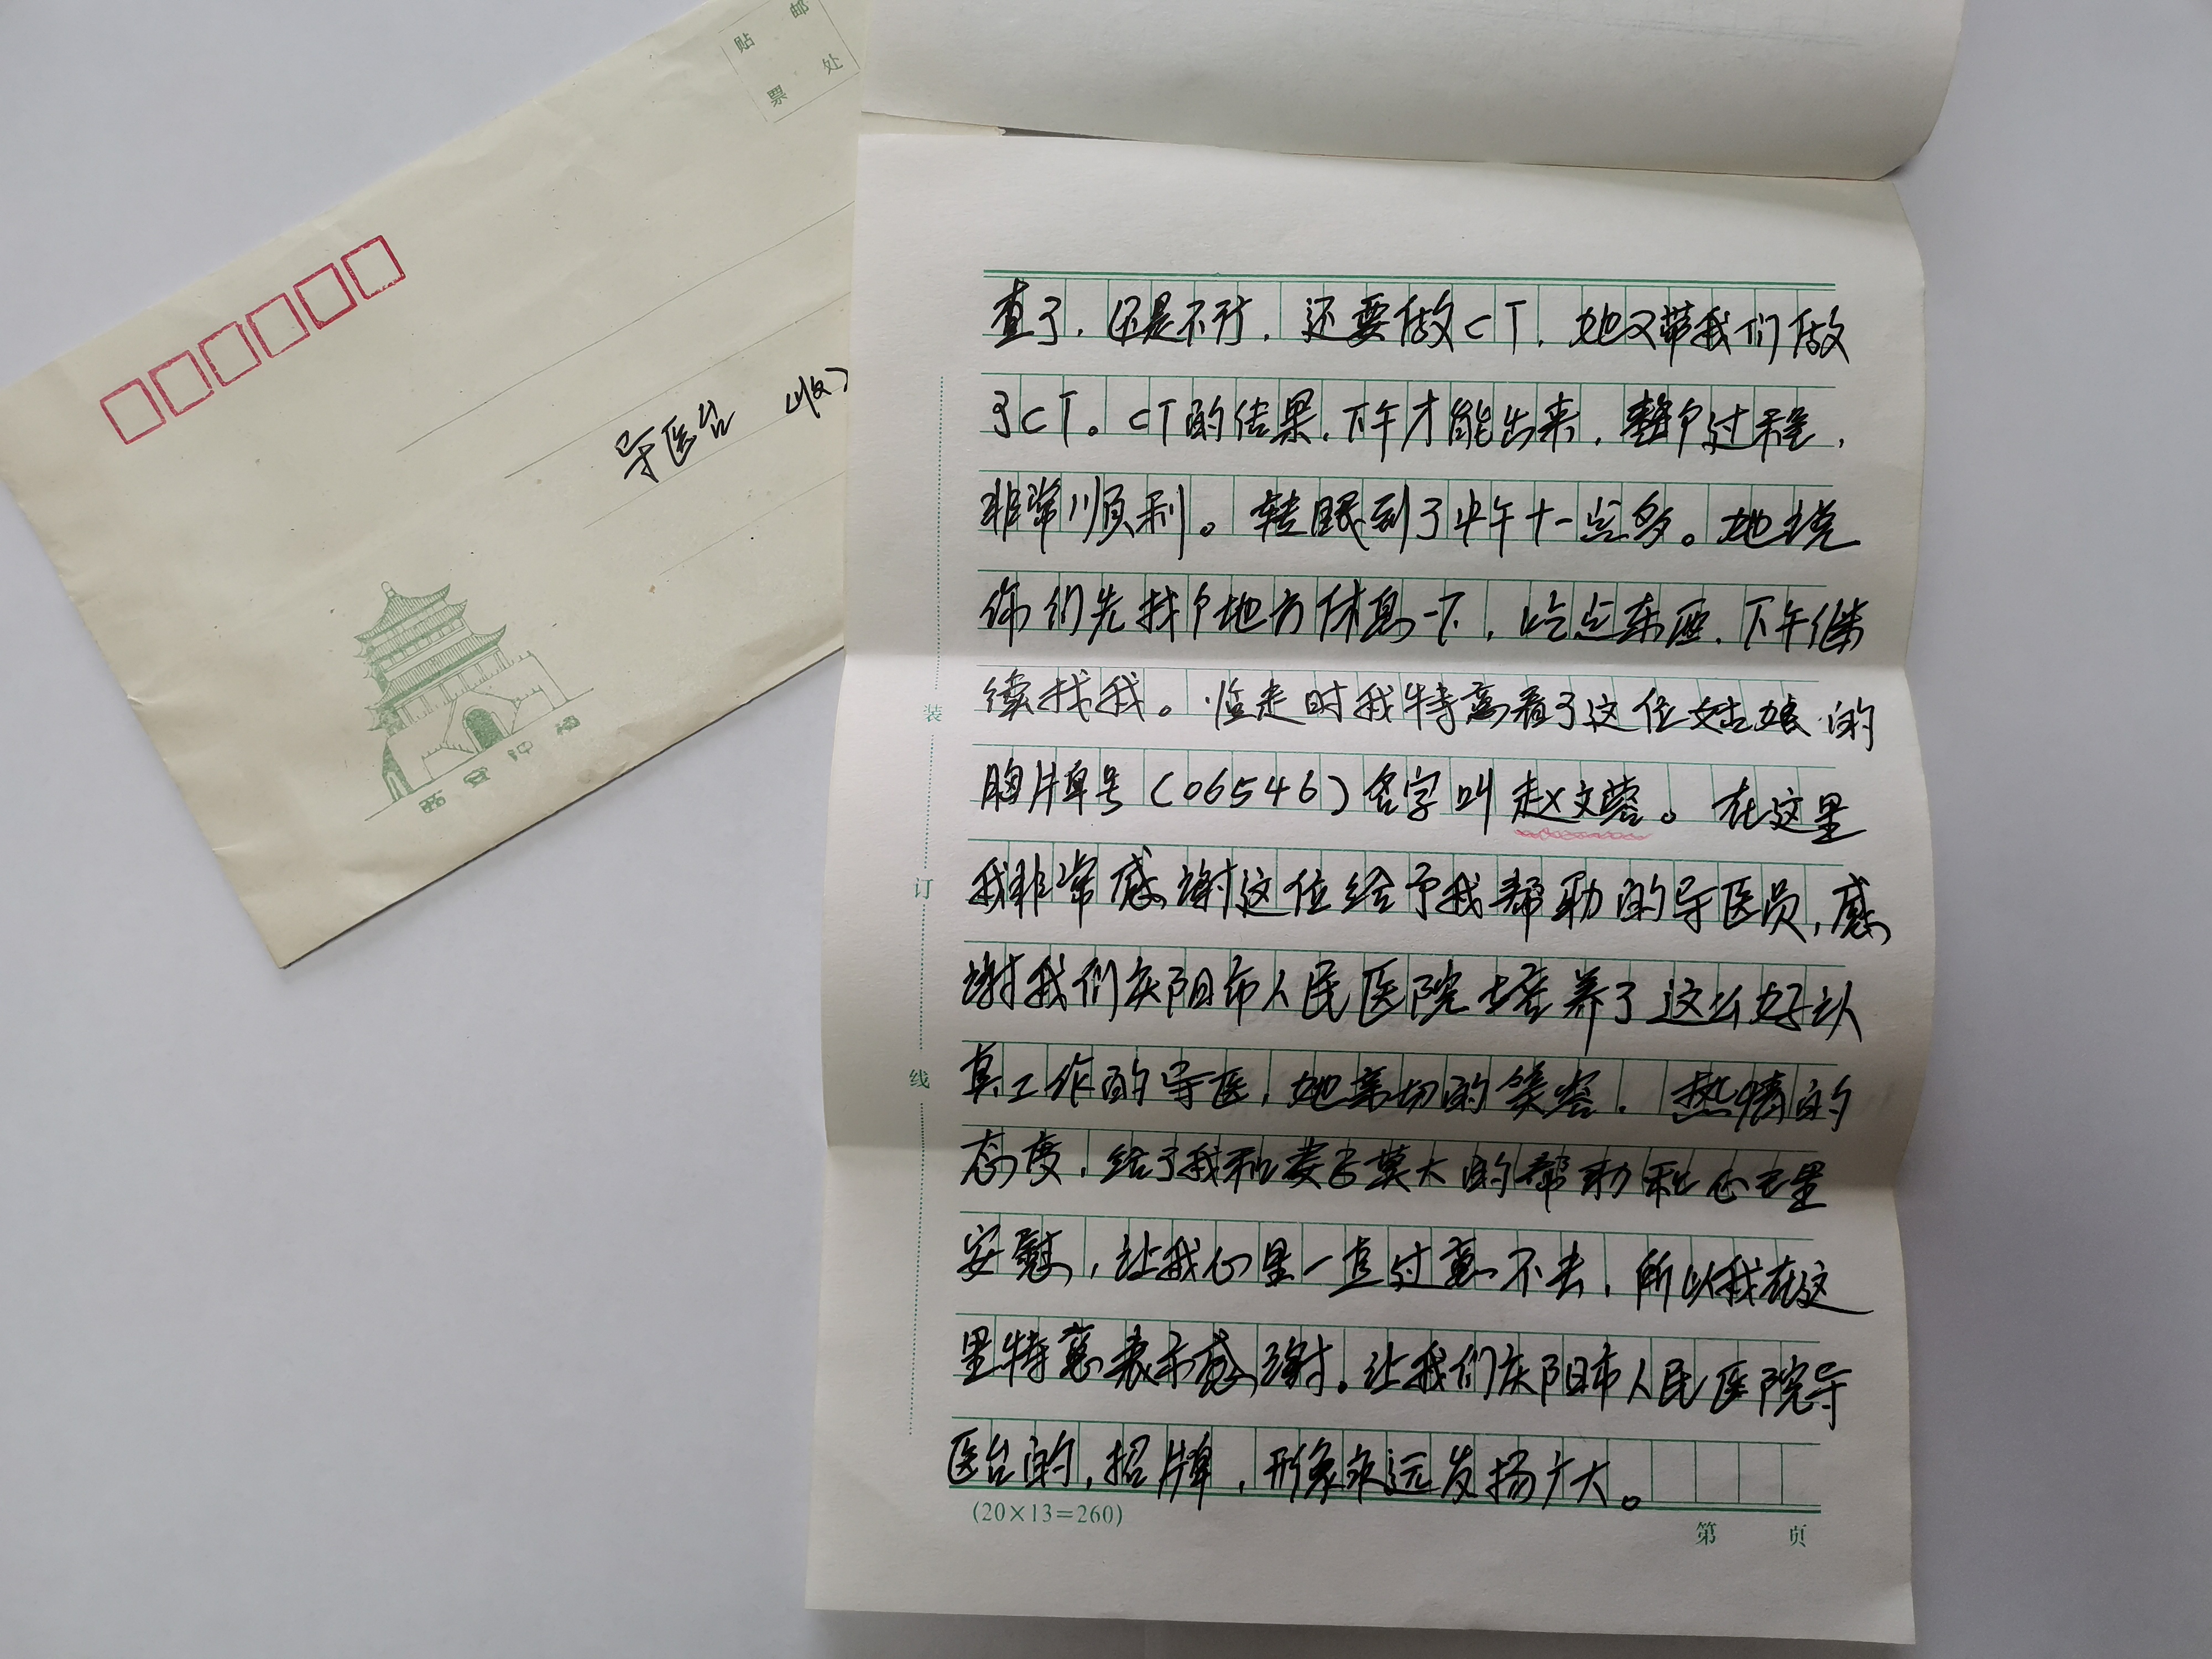 贴邮
票处
导医台 (收)
西安钟楼
查了，还是不行，还要做CT，她又带我们做
了CT。CT的结果，下午才能出来，整个过程，
非常顺利。转眼到了中午十一点多。她说
你们先找个地方休息一下，吃点东西，下午继
续找我。临走时我特意看了这位姑娘的
胸片牌号(06546)名字叫赵文蓉。在这里
我非常感谢这位给予我帮助的导医员，感
谢我们庆阳市人民医院培养了这么好认
真工作的导医，她亲切的笑容，热情的
态度，给了我和妻子莫大的帮助和心里
安慰，让我心里一直过意不去，所以我在这
里特意表示感谢。让我们庆阳市人民医院导
医台的，招牌，形象永远发扬广大。
装
订
线
(20×13=260)
第 页